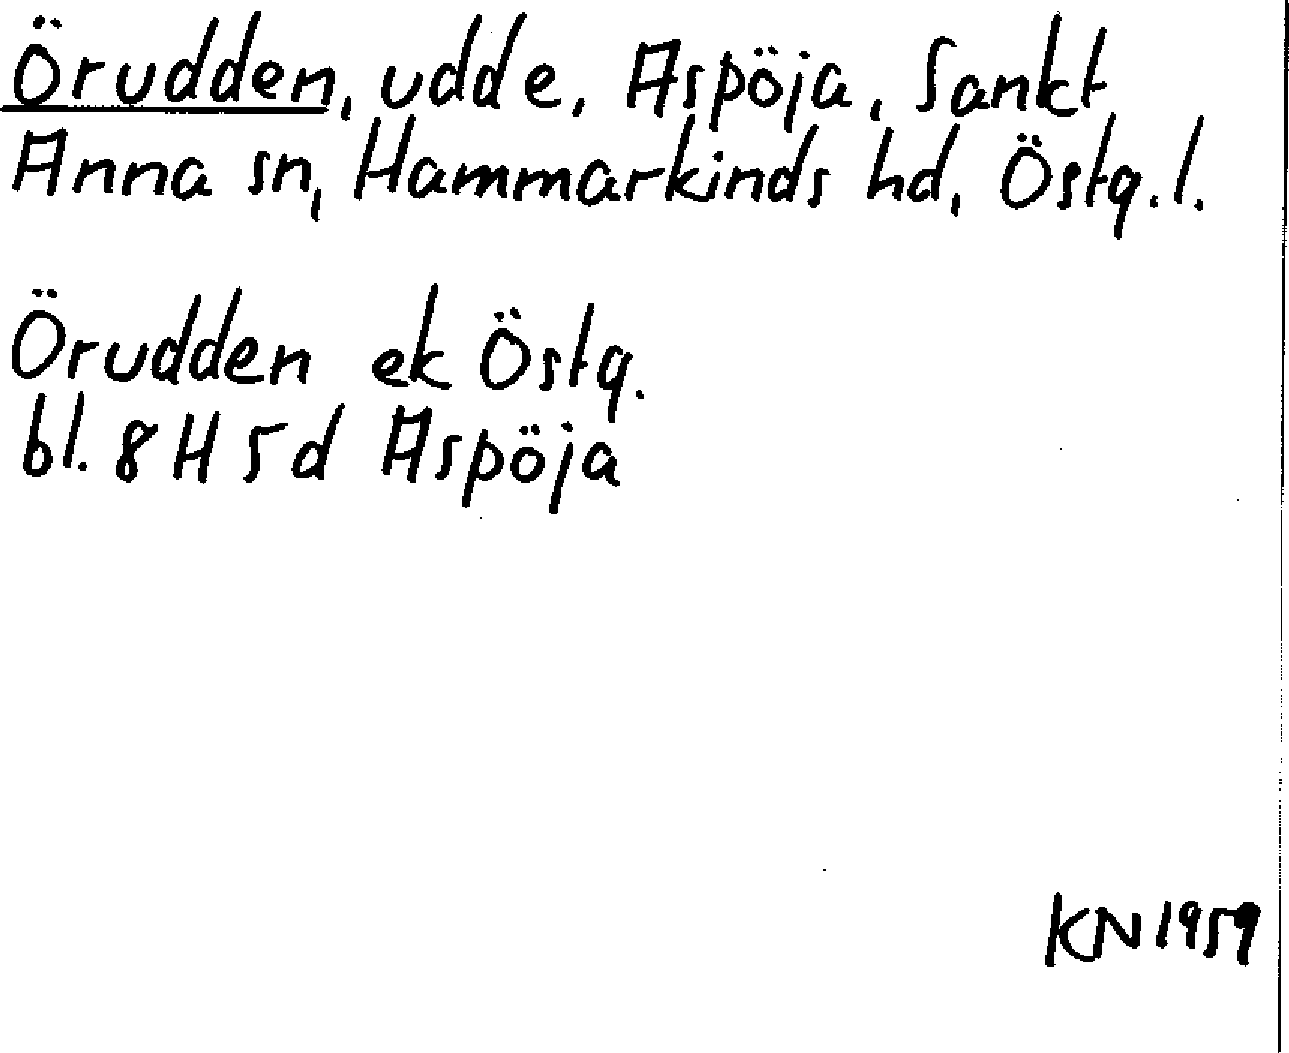 Örudden, udde, Aspöja, Sankt
Anna sn, Hammarkinds hd, Östg. l.
Örudden ek Östg.
bl. 8 H 5d Aspöja
KN 1959